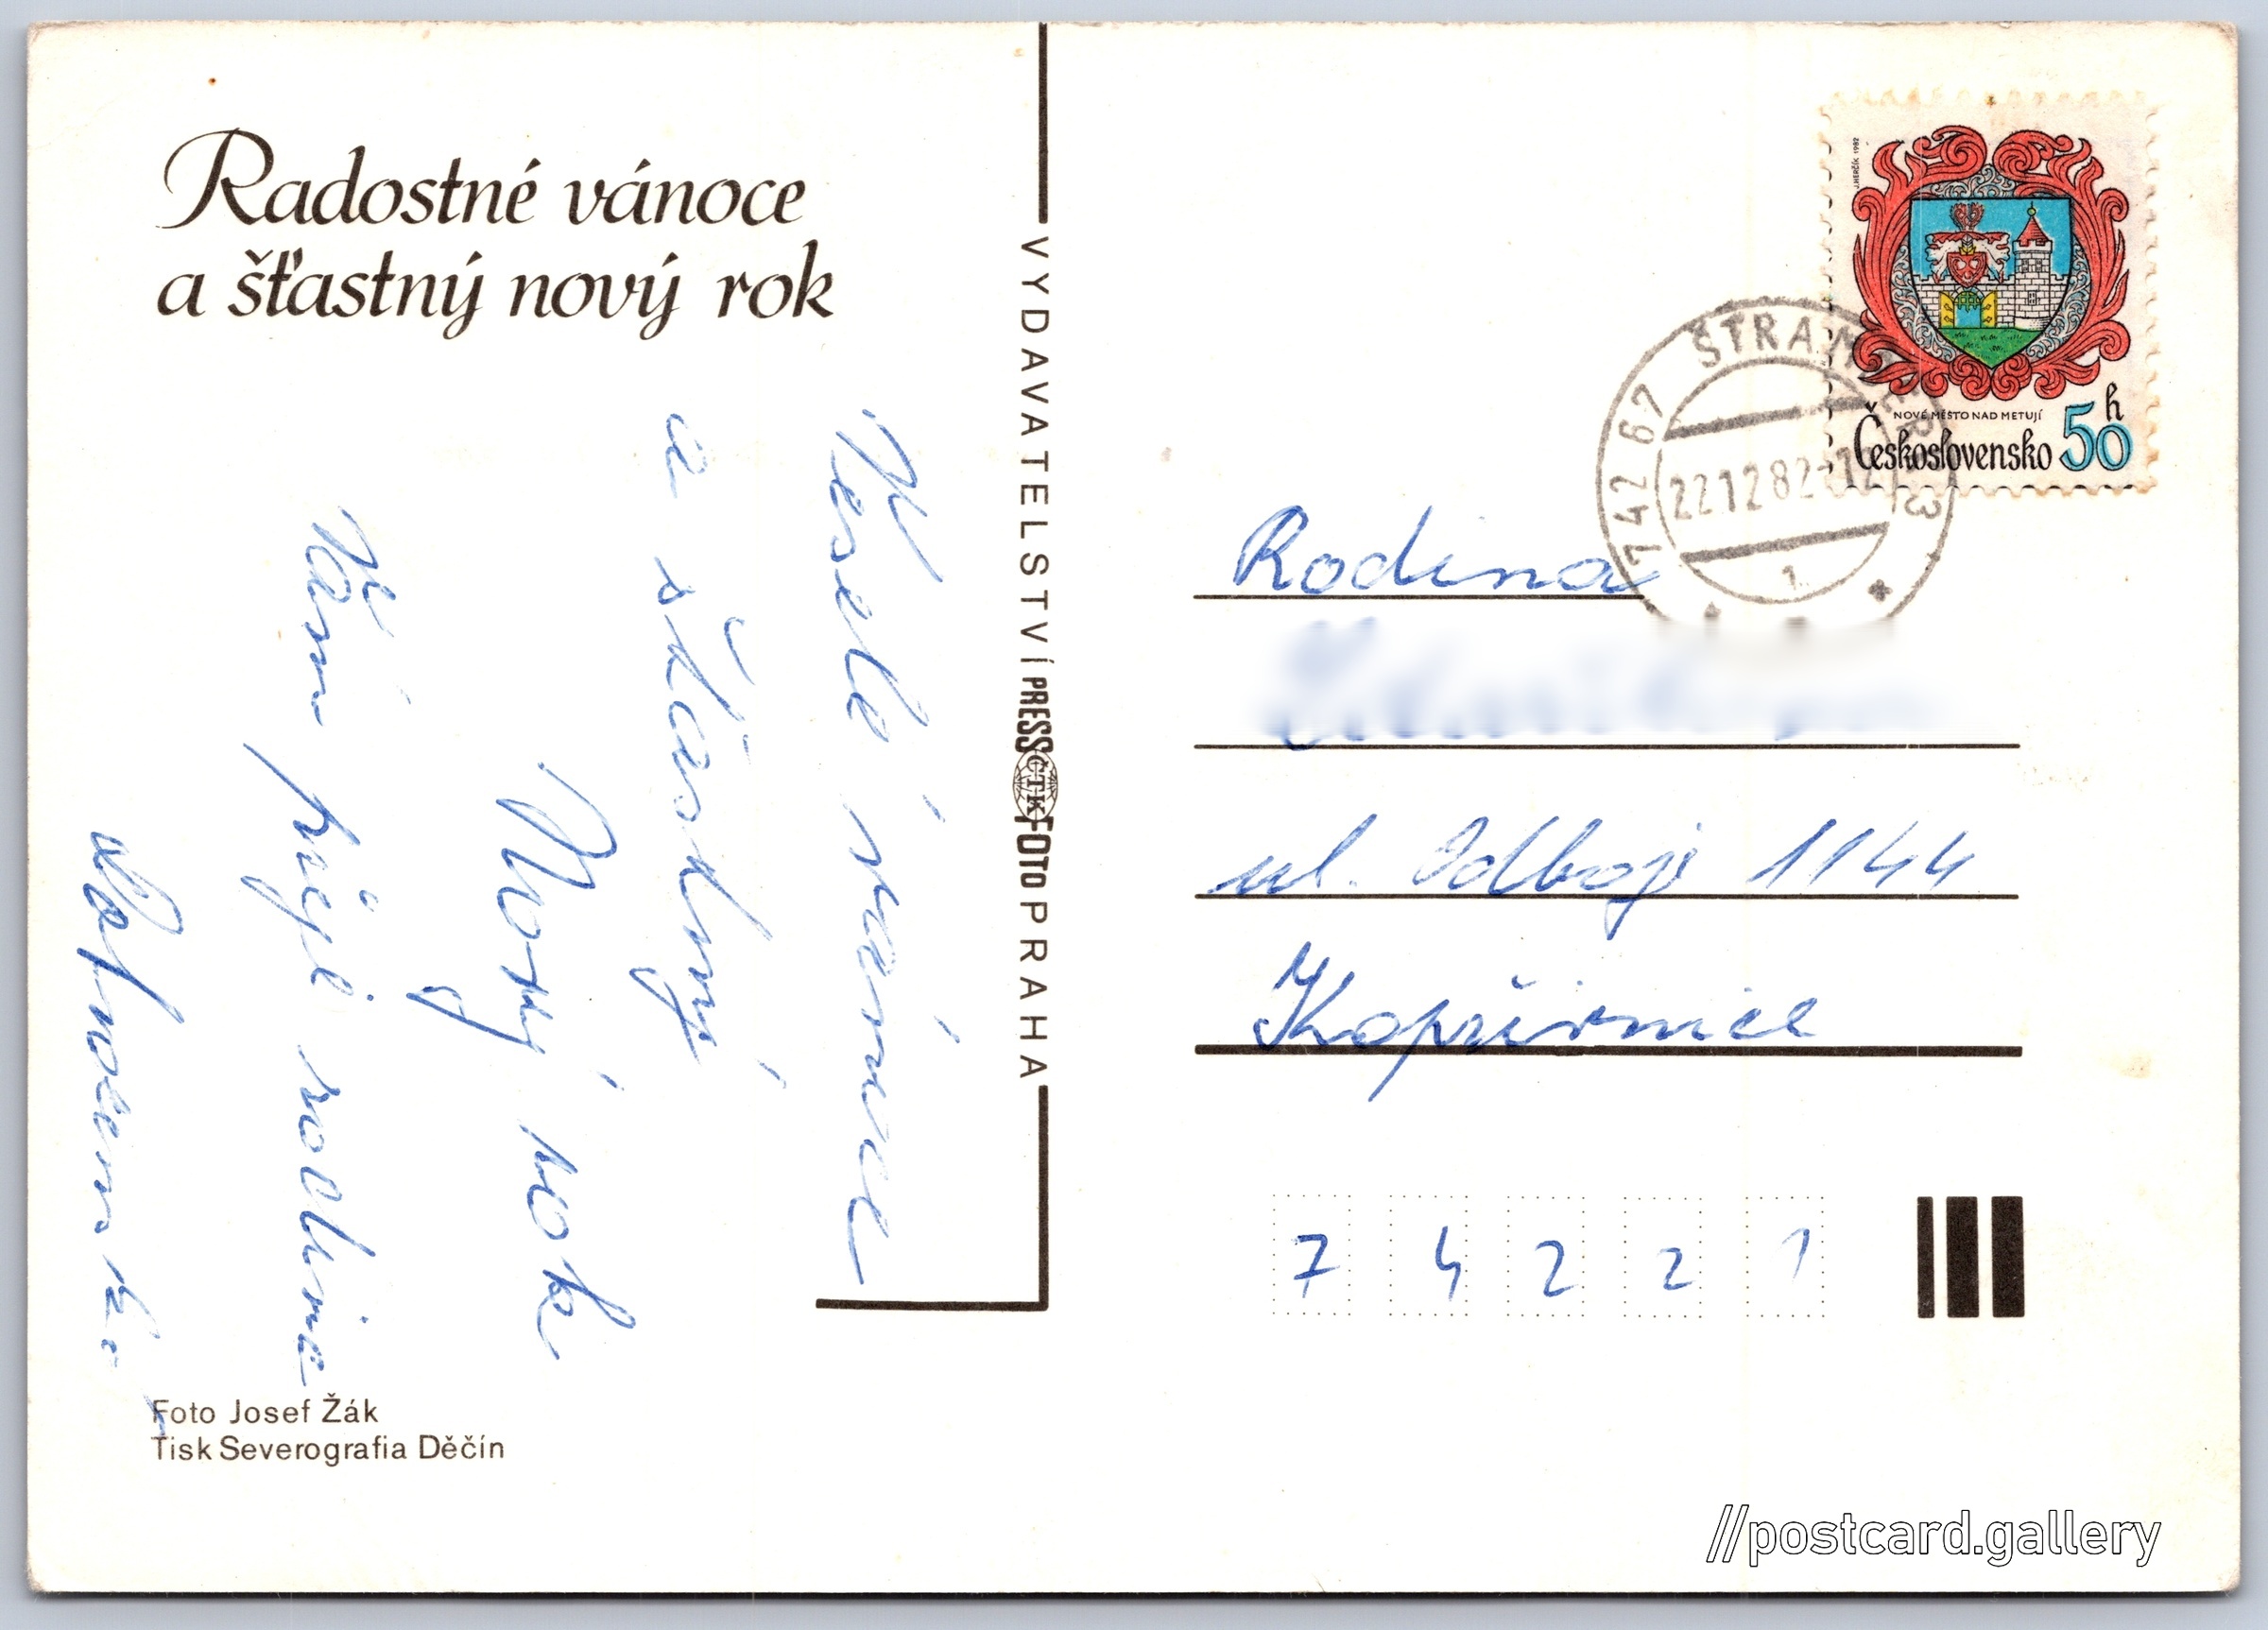 Radostné vánoce
a šťastný nový rok
Veselé svánce
a šťastný
Nový rok
Vám přeje rodina
Foto Josef Žák
Tisk Severografia Děčín
VYDAVATELSTVÍ PRESSFOTO PRAHA
ČTK
J.HERČÍK 1982
NOVÉ MĚSTO NAD METUJÍ
Československo 50 h
742 67 ŠTRAMBERK 3
22.12.82-12
1
Rodina
ul. Odboje 1144
Kopřivnice
7 4 2 2 1
//postcard.gallery